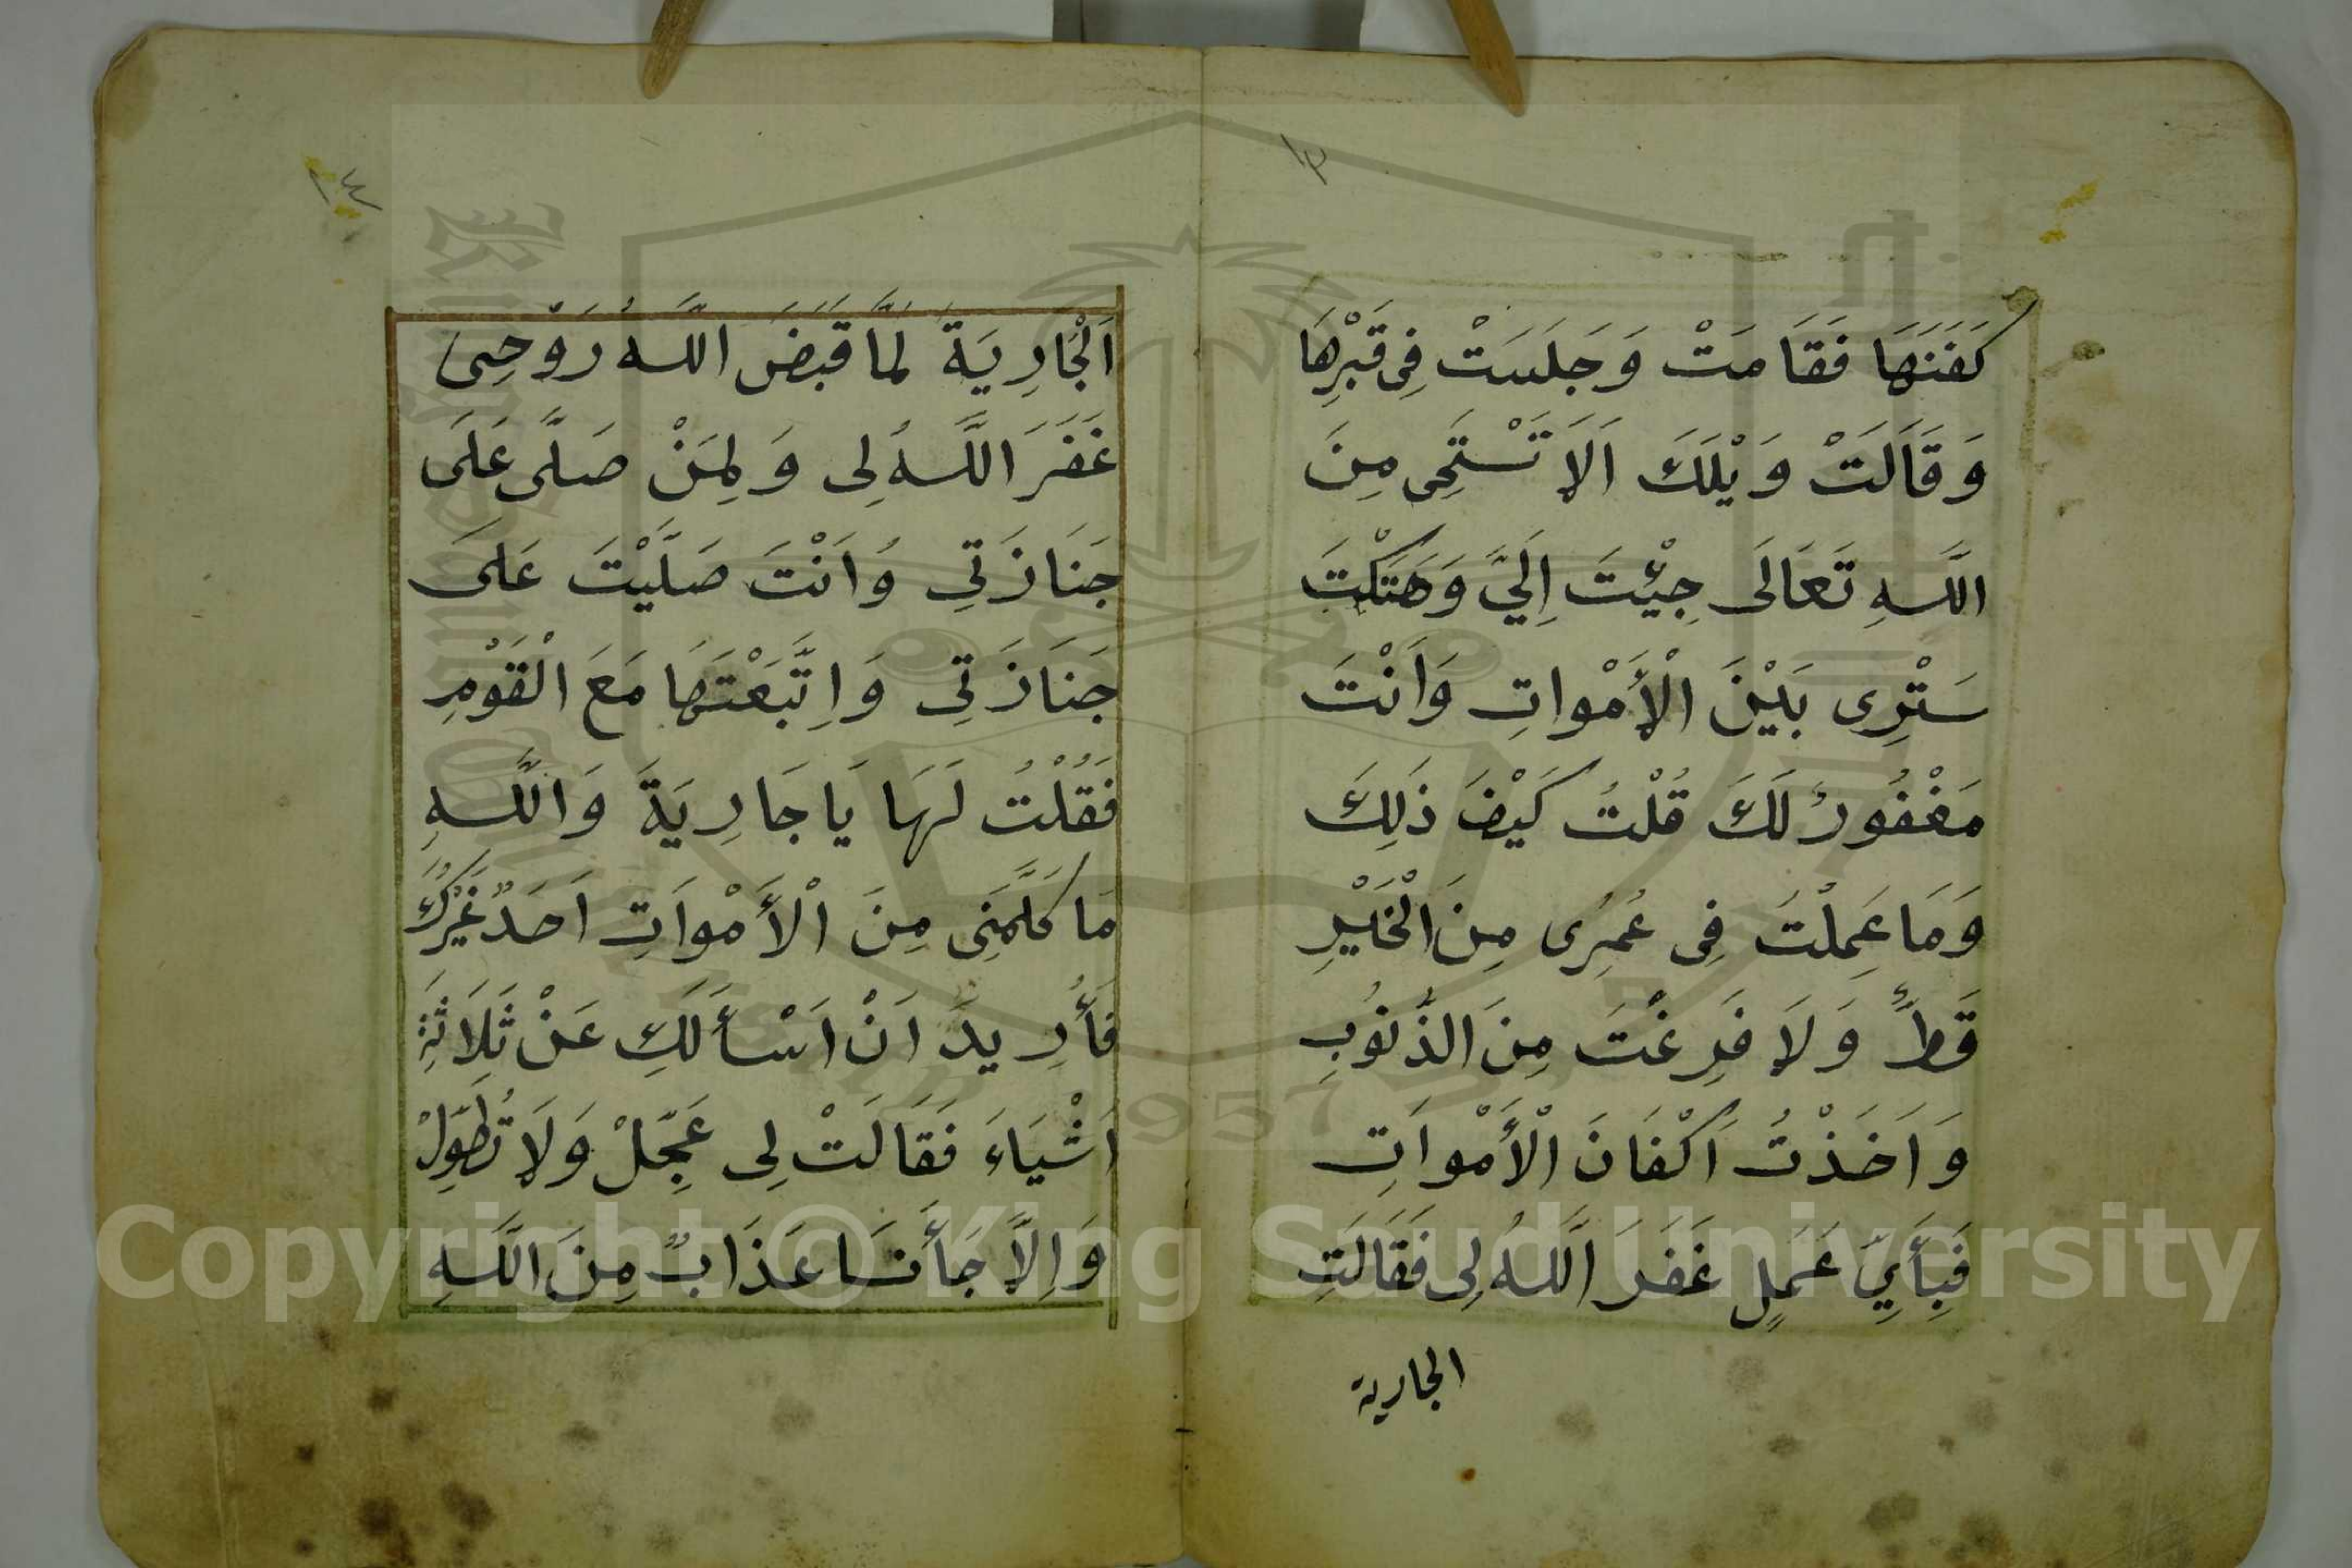 ١٣
كَفَنَهَا فَقَامَتْ وَجَلَسَتْ فِى قَبْرِهَا
وَقَالَتْ وَيْلَكَ اَلَا تَسْتَحِى مِنَ
اللَّهِ تَعَالَى جِئْتَ اِلَيَّ وَهَتَكْتَ
سَتْرِى بَيْنَ الْأَمْواتِ وَاَنْتَ
مَغْفُورٌ لَكَ قُلْتُ كَيْفَ ذَلِكَ
وَمَا عَمِلْتُ فِى عُمْرِى مِنَ الْخَيْرِ
قَطُّ وَلَا فَرِغْتُ مِنَ الذُّنُوبِ
وَاَخَذْتُ اَكْفَانَ الْأَمْوَاتِ
فَبِأَيِّ عَمَلٍ غَفَرَ اللَّهُ لِى فَقَالَتِ
الجارية
١٤
اَلْجَارِيَةُ لَمَّا قَبَضَ اللَّهُ رَوْحِى
غَفَرَ اللَّهُ لِى وَلِمَنْ صَلَّى عَلَى
جَنَازَتِى وَاَنْتَ صَلَّيْتَ عَلَى
جَنَازَتِى وَاِتَّبَعْتَهَا مَعَ الْقَوْمِ
فَقُلْتُ لَهَا يَا جَارِيَةَ وَاللَّهِ
مَا كَلَّمَنِى مِنَ الْأَمْوَاتِ اَحَدٌ غَيْرُكِ
فَأُرِيدُ اَنْ اَسْأَلَكِ عَنْ ثَلَاثَةِ
اَشْيَاءَ فَقَالَتْ لِى عَجِّلْ وَلَا تُطَوِّلْ
وَاِلَّا جَأَتنَا عَذَابٌ مِنَ اللَّهِ
Copyright © King Saud University
1957